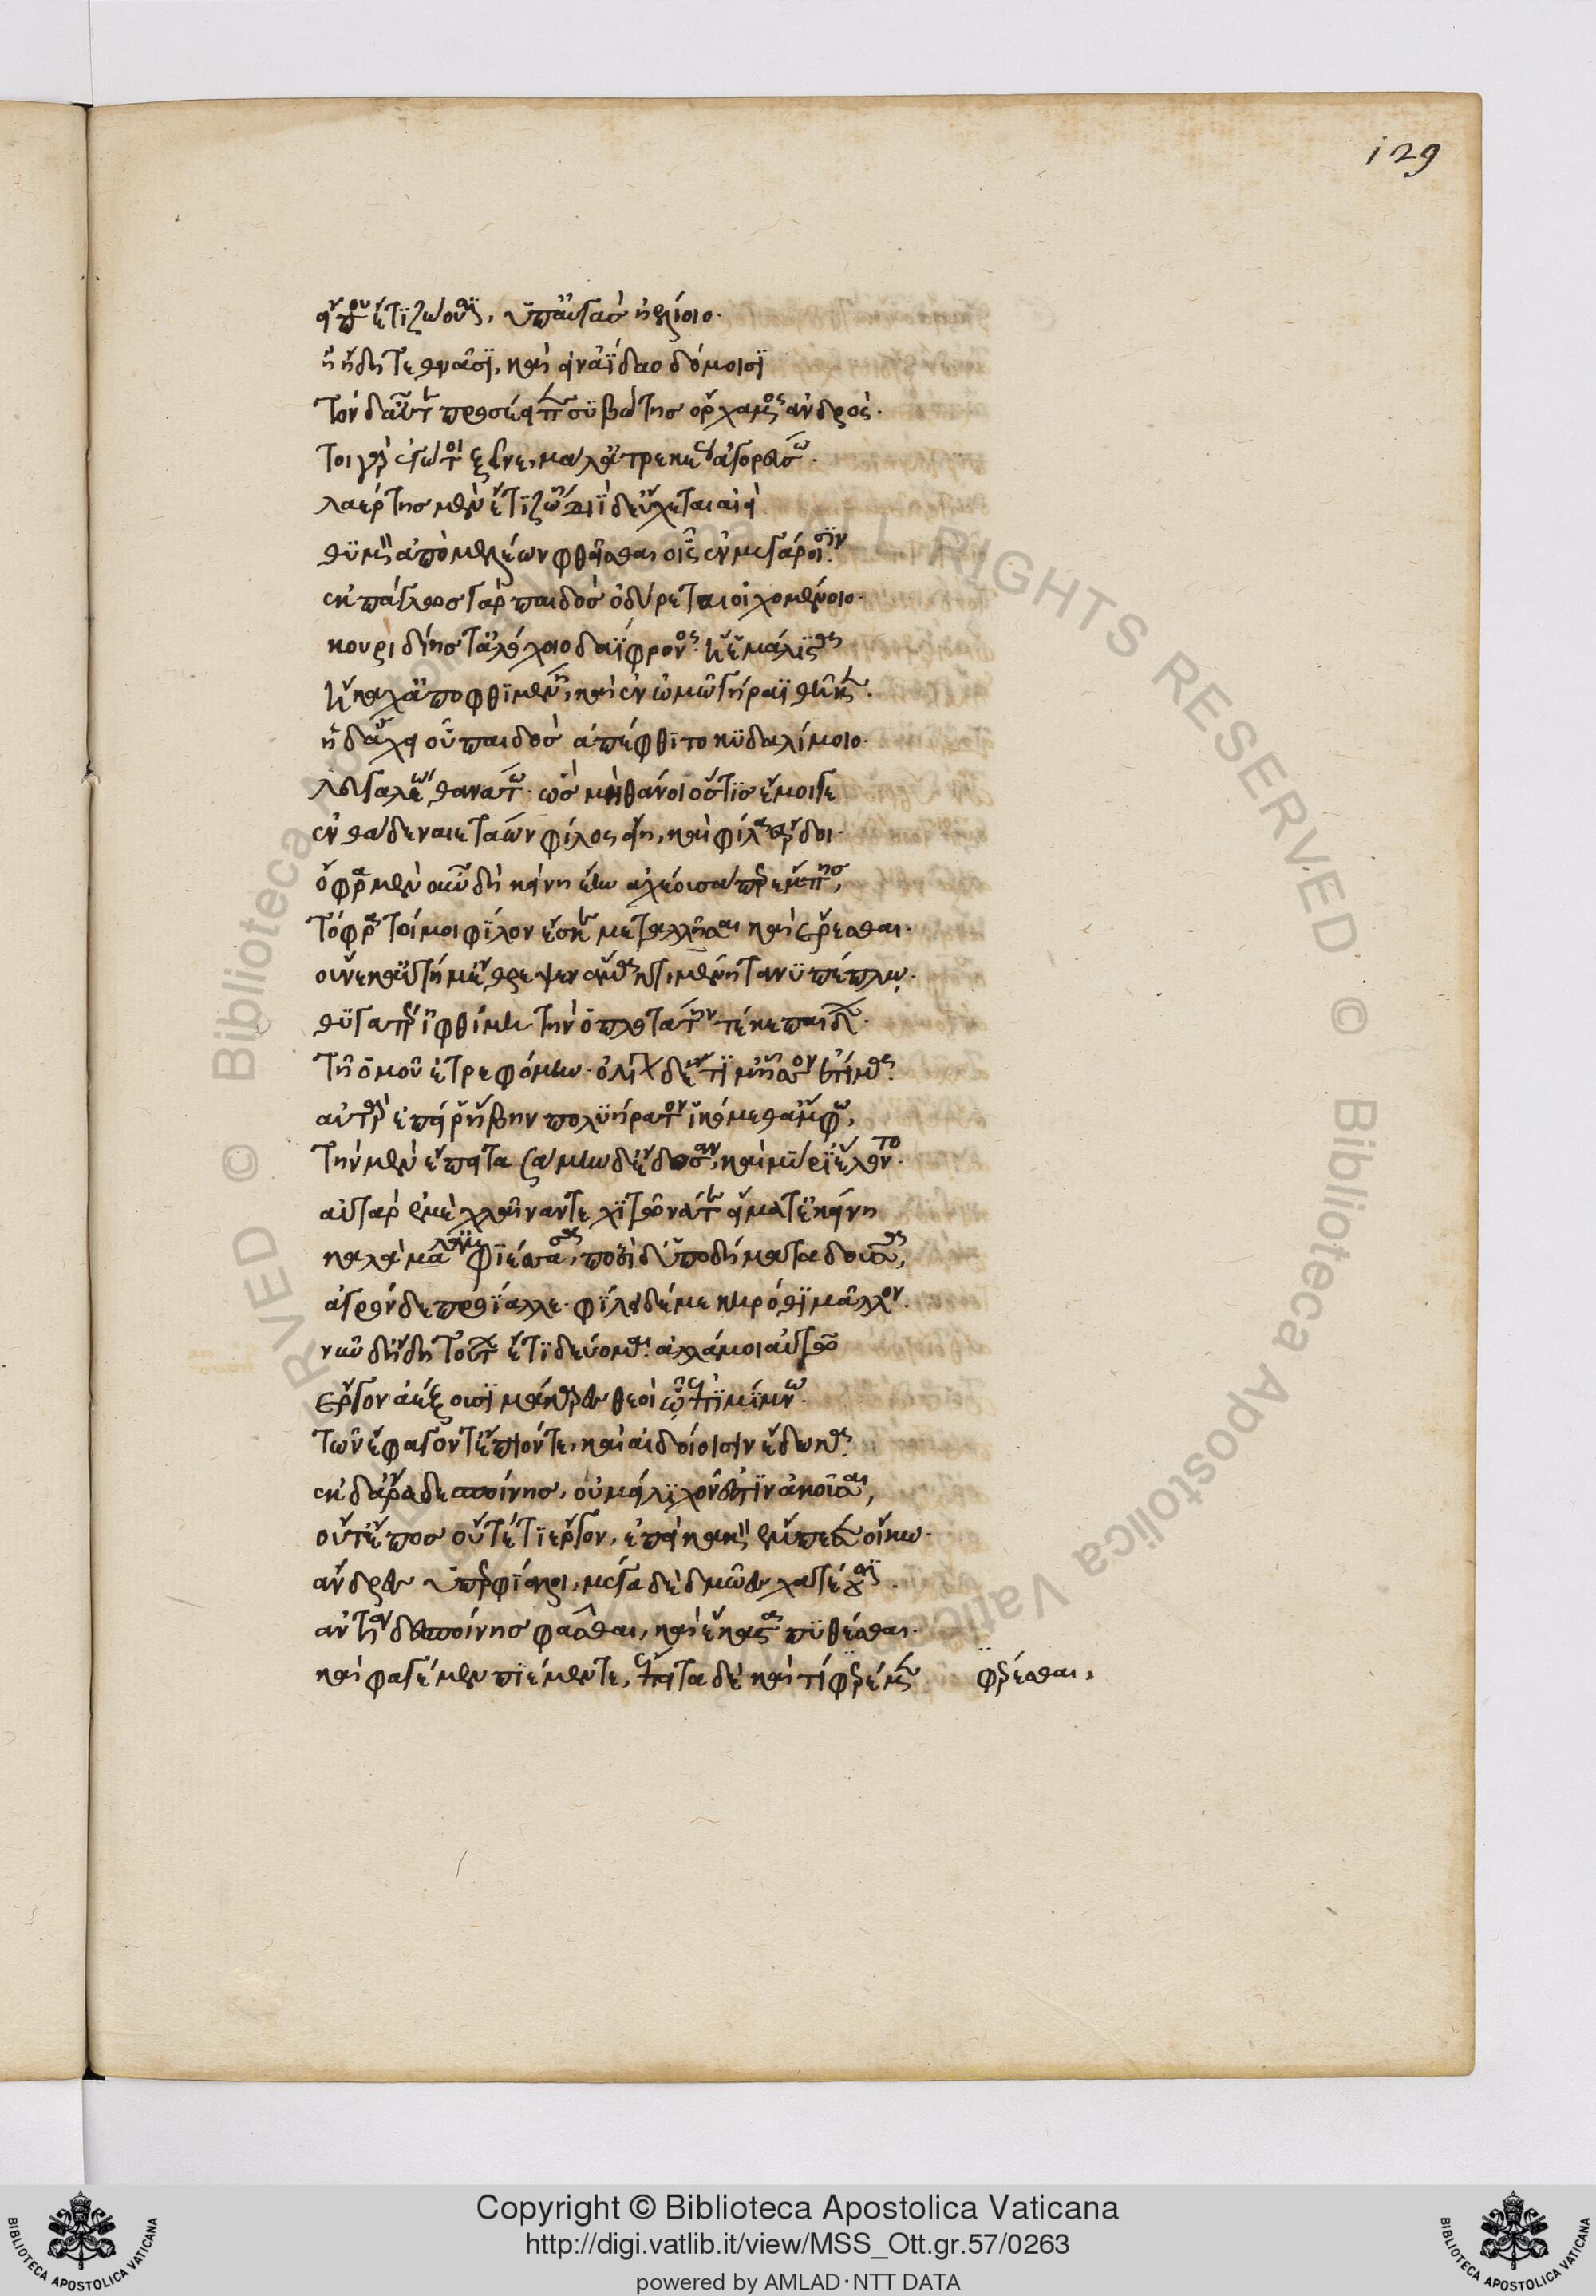 129
εἴ που ἔτι ζώουσιν, ὑπ' αὐγὰς ἠελίοιο.
ἢ ἤδη τεθνᾶσι, καὶ εἰν ἀΐδαο δόμοισι
τὸν δ' αὖτε προσέειπε συβώτης ὄρχαμος ἀνδρῶν.
τοιγὰρ ἐγώ τοι ξεῖνε, μάλ' ἀτρεκέως ἀγορεύσω.
λαέρτης μὲν ἔτι ζώει διῒ δ' εὔχεται αἰεὶ
θυμὸν ἀπὸ μελέων φθεῖσθαι οἷς ἐν μεγάροισιν.
ἐκπάγλως γὰρ παιδὸς ὀδύρεται οἰχομένοιο.
κουριδίης τ' ἀλόχοιο δαΐφρονος. ἥ ἑ μάλιστα
ἤκαχ' ἀποφθιμένη, καὶ ἐν ὠμῷ γήραϊ θῆκεν.
ἡ δ' ἄχει οὗ παιδὸς ἀπέφθιτο κυδαλίμοιο.
λευγαλέῳ θανάτῳ. ὡς μὴ θάνοι ὅστις ἔμοιγε
ἐνθάδε ναιετάων φίλος εἴη, καὶ φίλα ἔρδοι.
ὄφρα μὲν οὖν δὴ κείνη ἔην ἀχέουσά περ ἔμπης,
τόφρα τοί μοι φίλον ἔσκε μεταλλῆσαι καὶ ἔρεσθαι.
οὕνεκά μ' αὐτὴ θρέψεν ἅμα κτιμένῃ τανυπέπλῳ.
θυγατέρ' ἰφθίμῃ τὴν ὁπλοτάτην τέκε παίδων.
τῇ ὁμοῦ ἐτρεφόμην. ὀλίγον δέ τί μ' ἧσσον ἐτίμα.
αὐτὰρ ἐπεί ῥ' ἥβην πολυήρατον ἱκόμεθ' ἄμφω,
τὴν μὲν ἔπειτα σάμην δ' ἔδοσαν, καὶ μυρί' ἕλοντο.
αὐτὰρ ἐμὲ χλαῖνάν τε χιτῶνά τε εἵματ' ἐκείνη
καλὰ μάλ' ἀμφιέσασα, ποσὶ δ' ὑποδήματα δοῦσα,
ἀγρόνδε προΐαλλε. φίλει δέ με κηρόθι μᾶλλον.
νῦν δ' ἤδη τούτων ἐπιδεύομαι. ἀλλά μοι αὐτῷ
ἔργον ἀέξουσι μάκαρες θεοὶ ᾧ ἐπιμίμνω.
τῶν ἔφαγόν τ' ἔπιόν τε, καὶ αἰδοίοισιν ἔδωκα.
ἐκ δ' ἄρα δεσποίνης, οὐ μείλιχον ἔστιν ἀκοῦσαι,
οὔτ' ἔπος οὔτέ τι ἔργον, ἐπεὶ κακὸν ἔμπεσεν οἴκῳ.
ἄνδρες ὑπερφίαλοι, μέγα δὲ δμῶες χατέουσι.
ἀντία δεσποίνης φάσθαι, καὶ ἕκαστα πυθέσθαι.
καὶ φαγέμεν πιέμεν τε, ἔπειτα δὲ καὶ τί φέρεσθαι φέρεσθαι,
© Biblioteca Apostolica Vaticana ALL RIGHTS RESERVED © Biblioteca Apostolica Vaticana ALL RIGHTS RESERVED
Copyright © Biblioteca Apostolica Vaticana
http://digi.vatlib.it/view/MSS_Ott.gr.57/0263
powered by AMLAD·NTT DATA
BIBLIOTECA APOSTOLICA VATICANA
BIBLIOTECA APOSTOLICA VATICANA